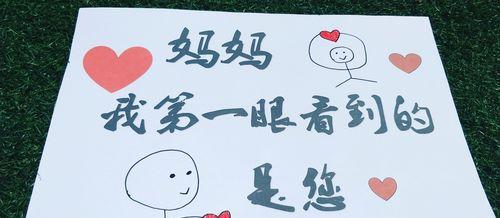 妈妈
我第一眼看到的
是您